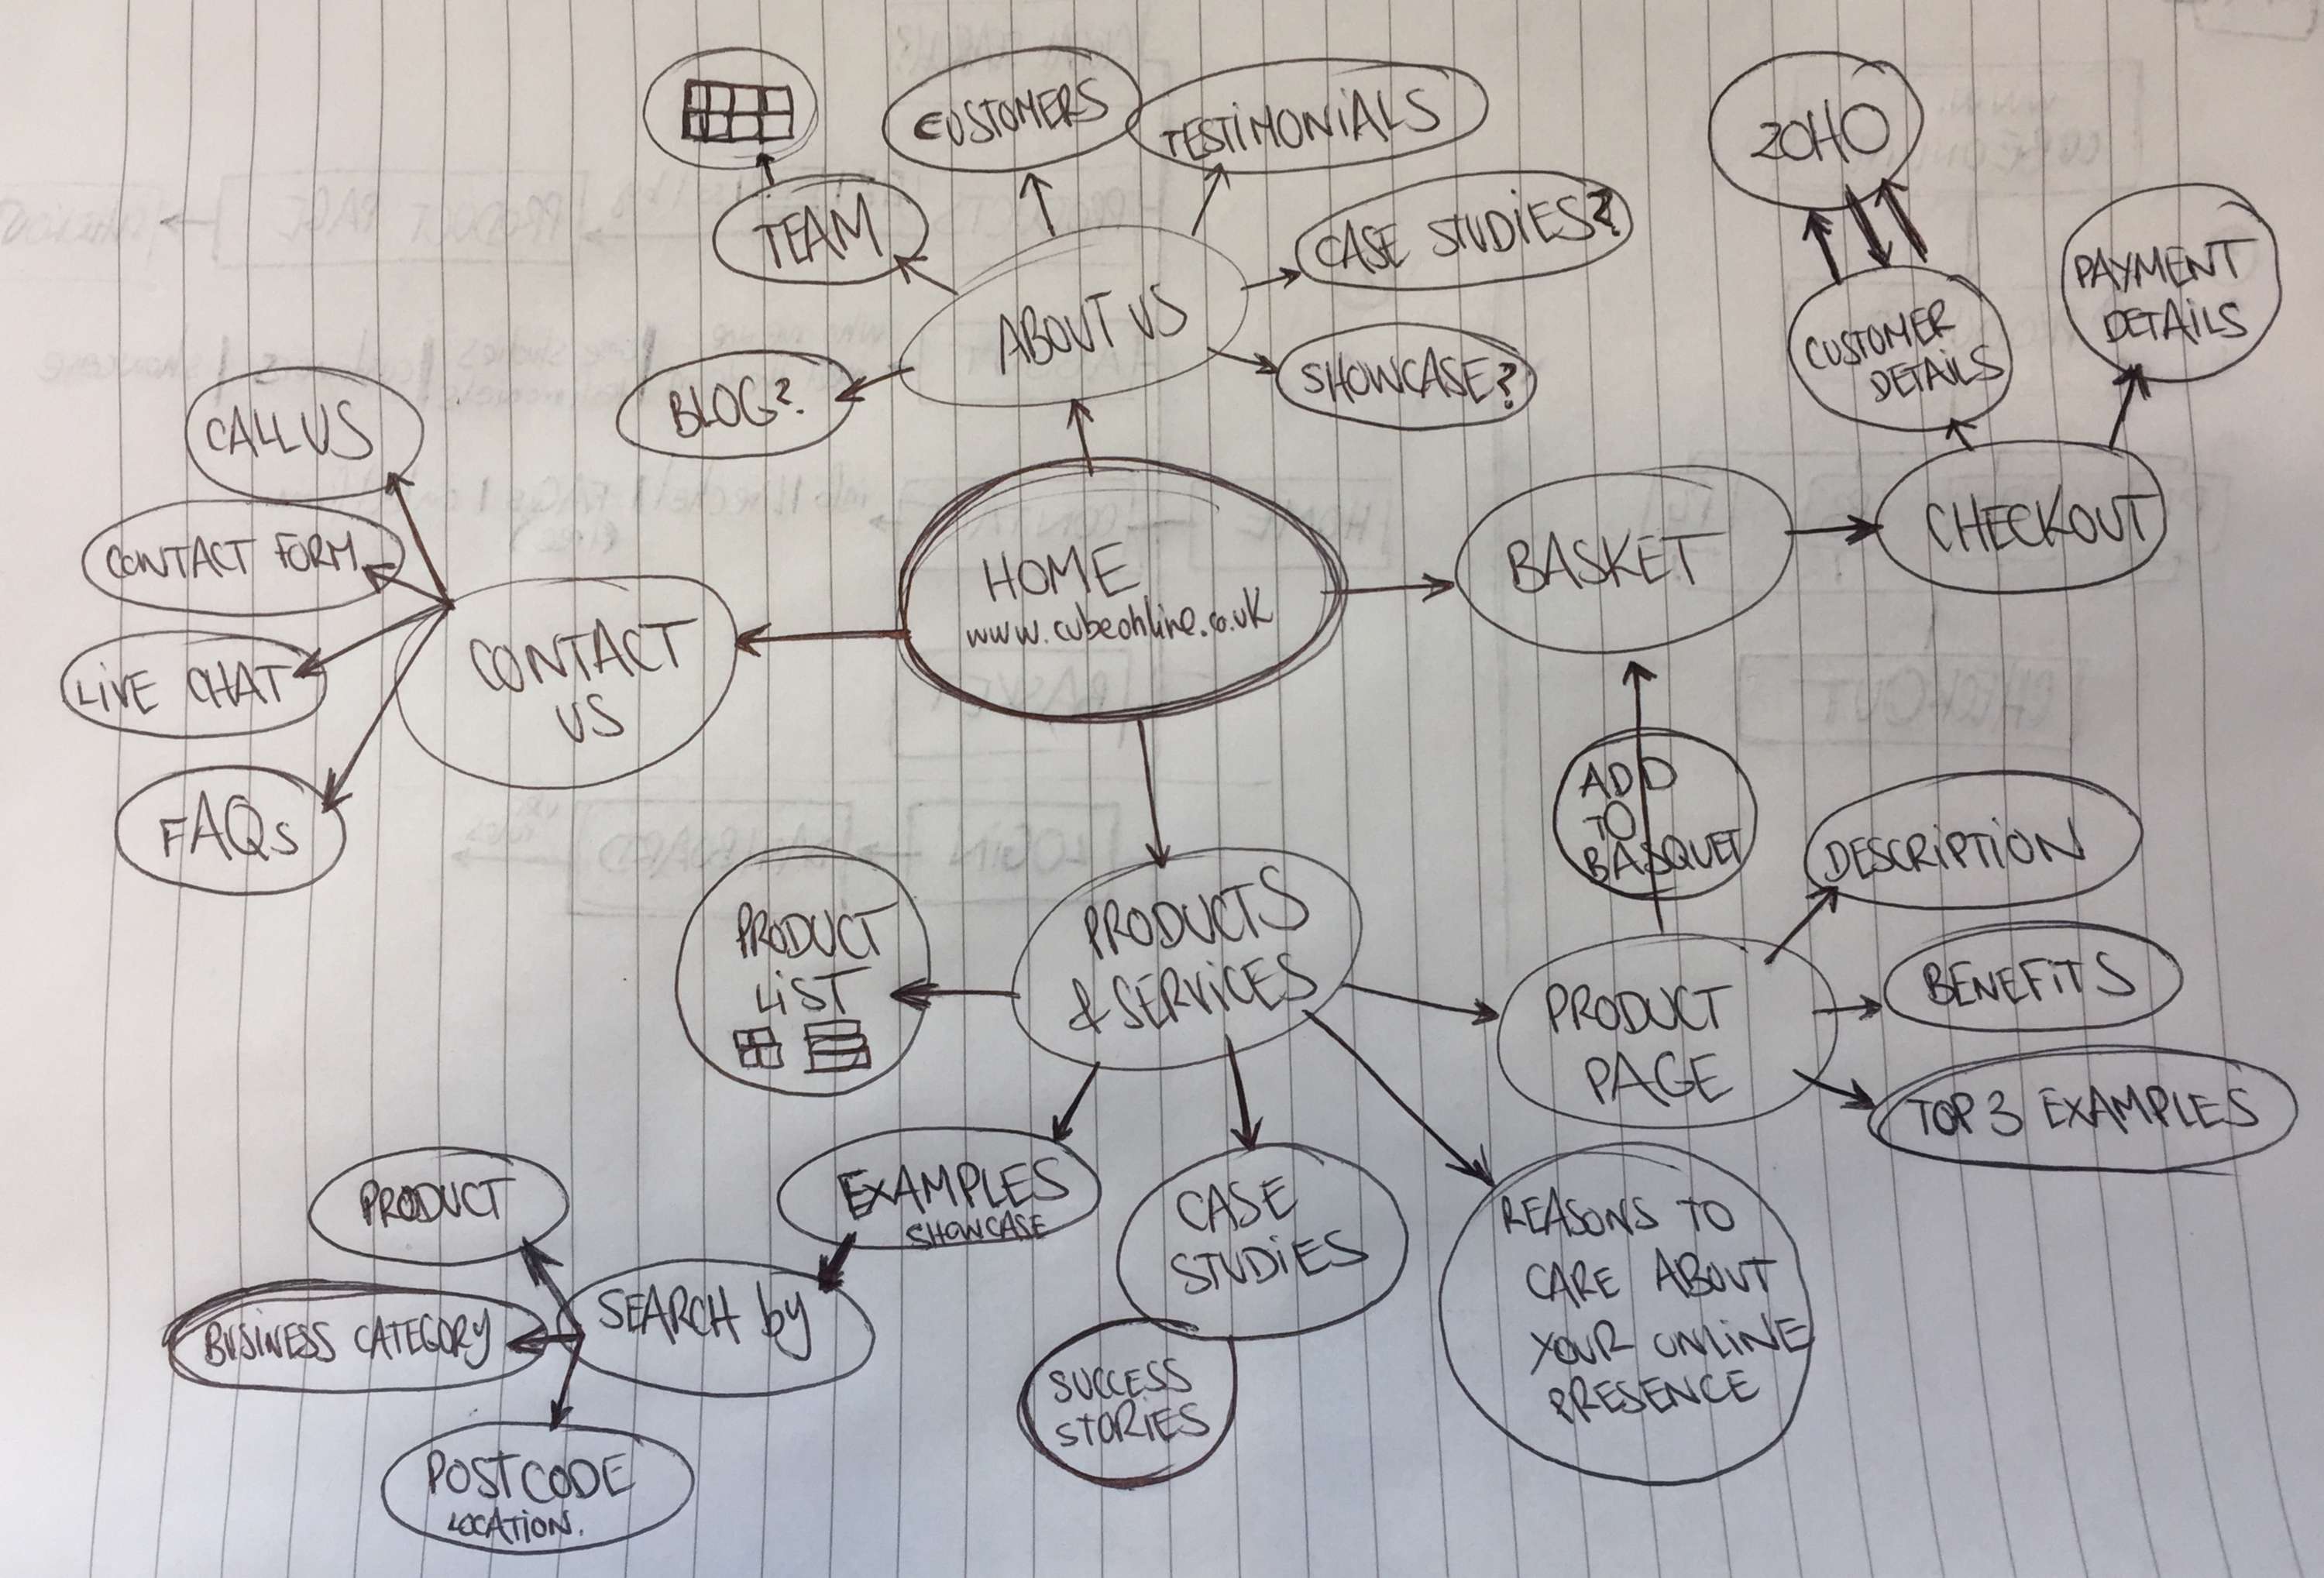 CUSTOMERS
TESTIMONIALS
ZOHO
TEAM
CASE STUDIES?
PAYMENT
DETAILS
ABOUT US
CUSTOMER
DETAILS
BLOG?
SHOWCASE?
CALL US
CONTACT FORM
HOME
www.cubeonline.co.uk
BASKET
CHECKOUT
LIVE CHAT
CONTACT
US
FAQs
ADD
TO
BASQUET
DESCRIPTION
PRODUCT
LIST
PRODUCTS
& SERVICES
PRODUCT
PAGE
BENEFITS
TOP 3 EXAMPLES
PRODUCT
EXAMPLES
SHOWCASE
CASE
STUDIES
REASONS TO
CARE ABOUT
YOUR ONLINE
PRESENCE
BUSINESS CATEGORY
SEARCH by
SUCCESS
STORIES
POSTCODE
LOCATION.